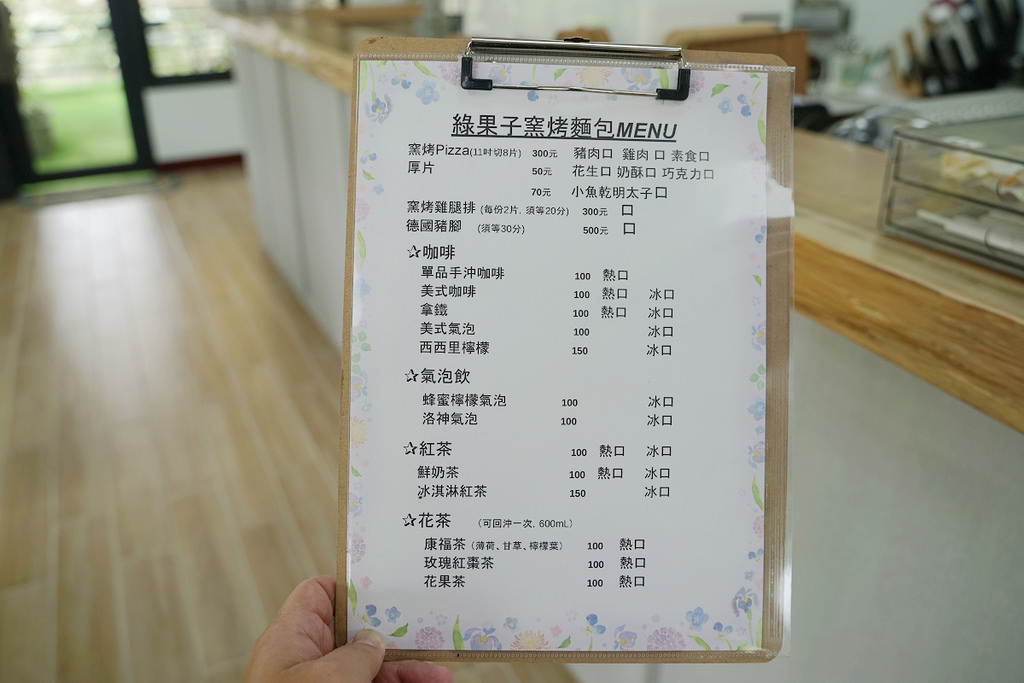 綠果子窯烤麵包MENU
窯烤Pizza(11吋切8片) 300元 豬肉口 雞肉口 素食口
厚片 50元 花生口 奶酥口 巧克力口
70元 小魚乾明太子口
窯烤雞腿排 (每份2片, 須等20分) 300元 口
德國豬腳 (須等30分) 500元 口
☆咖啡
單品手沖咖啡 100 熱口
美式咖啡 100 熱口 冰口
拿鐵 100 熱口 冰口
美式氣泡 100 冰口
西西里檸檬 150 冰口
☆氣泡飲
蜂蜜檸檬氣泡 100 冰口
洛神氣泡 100 冰口
☆紅茶 100 熱口 冰口
鮮奶茶 100 熱口 冰口
冰淇淋紅茶 150 冰口
☆花茶 (可回沖一次, 600mL)
康福茶 (薄荷、甘草、檸檬葉) 100 熱口
玫瑰紅棗茶 100 熱口
花果茶 100 熱口